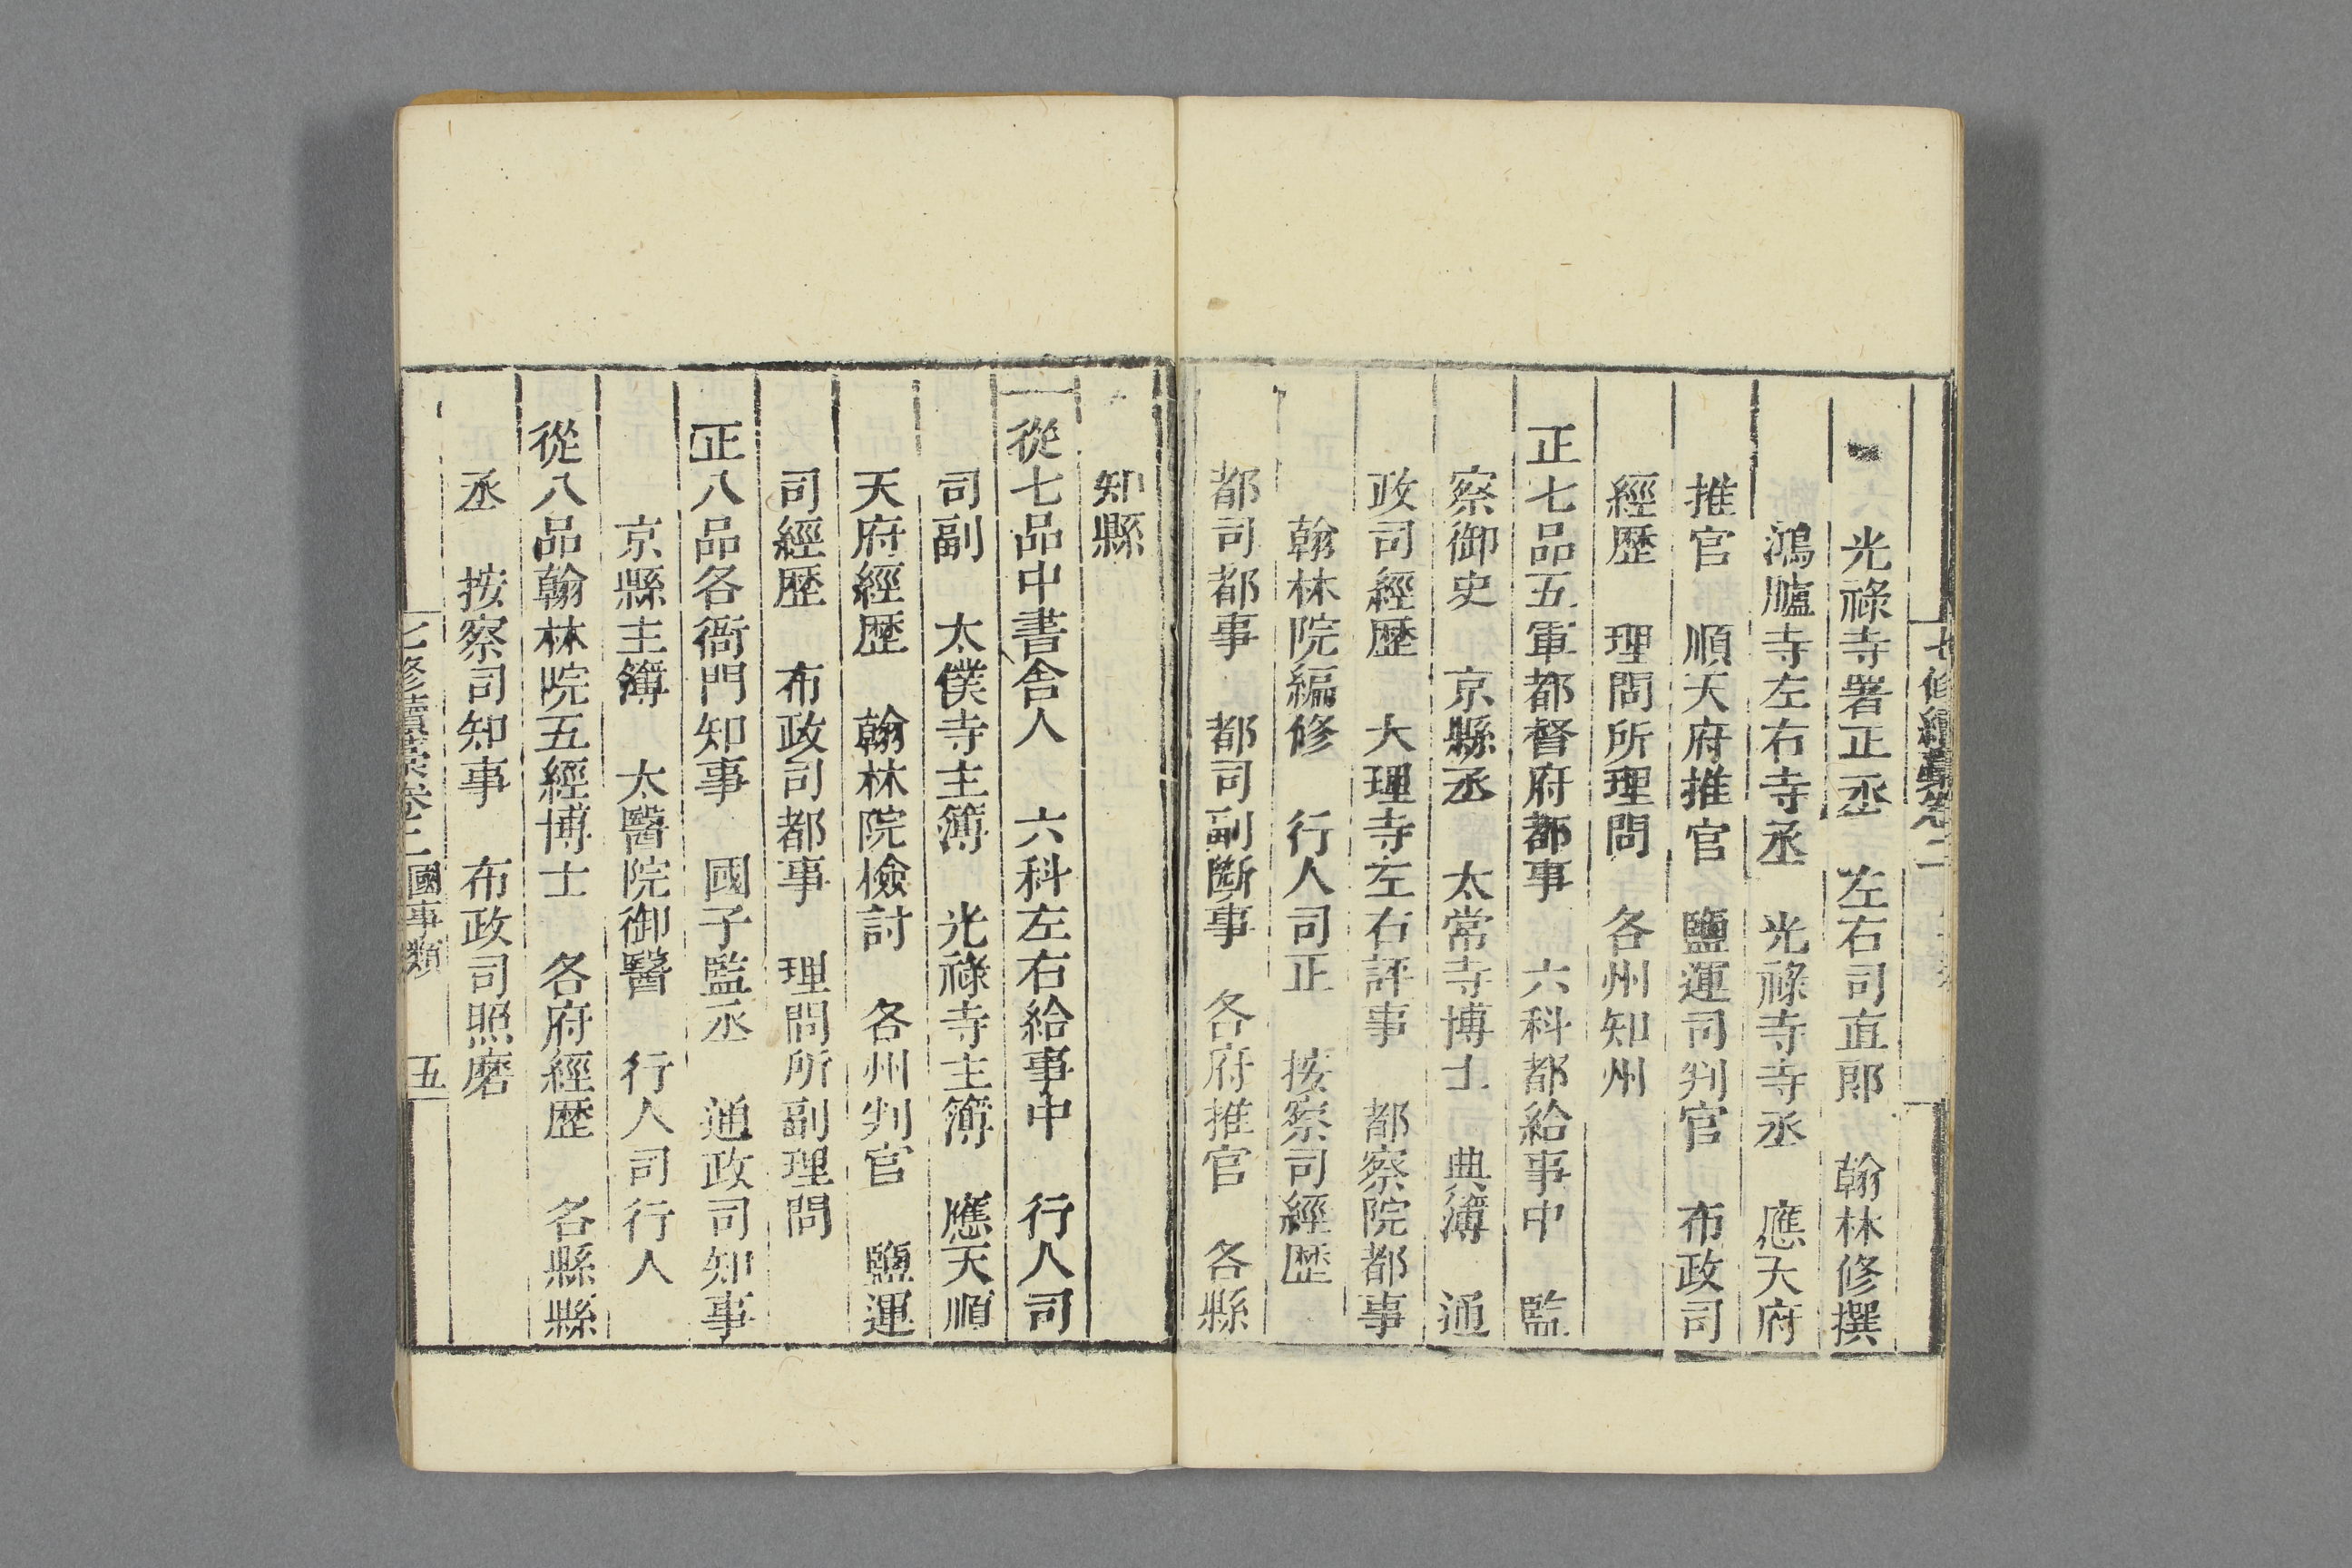 七修續藁卷二
光祿寺署正丞　左右司直郎　翰林修撰
鴻臚寺左右寺丞　光祿寺寺丞　應天府
推官　順天府推官　鹽運司判官　布政司
經歷　理問所理問　各州知州
正七品五軍都督府都事　六科都給事中　監
察御史　京縣丞　太常寺博士　典簿　通
政司經歷　大理寺左右評事　都察院都事
翰林院編修　行人司正　按察司經歷
都司都事　都司副斷事　各府推官　各縣
知縣
從七品中書舍人　六科左右給事中　行人司
司副　太僕寺主簿　光祿寺主簿　應天順
天府經歷　翰林院檢討　各州判官　鹽運
司經歷　布政司都事　理問所副理問
正八品各衙門知事　國子監丞　通政司知事
京縣主簿　太醫院御醫　行人司行人
從八品翰林院五經博士　各府經歷　各縣縣
丞　按察司知事　布政司照磨
七修續藁卷二　國事類　五